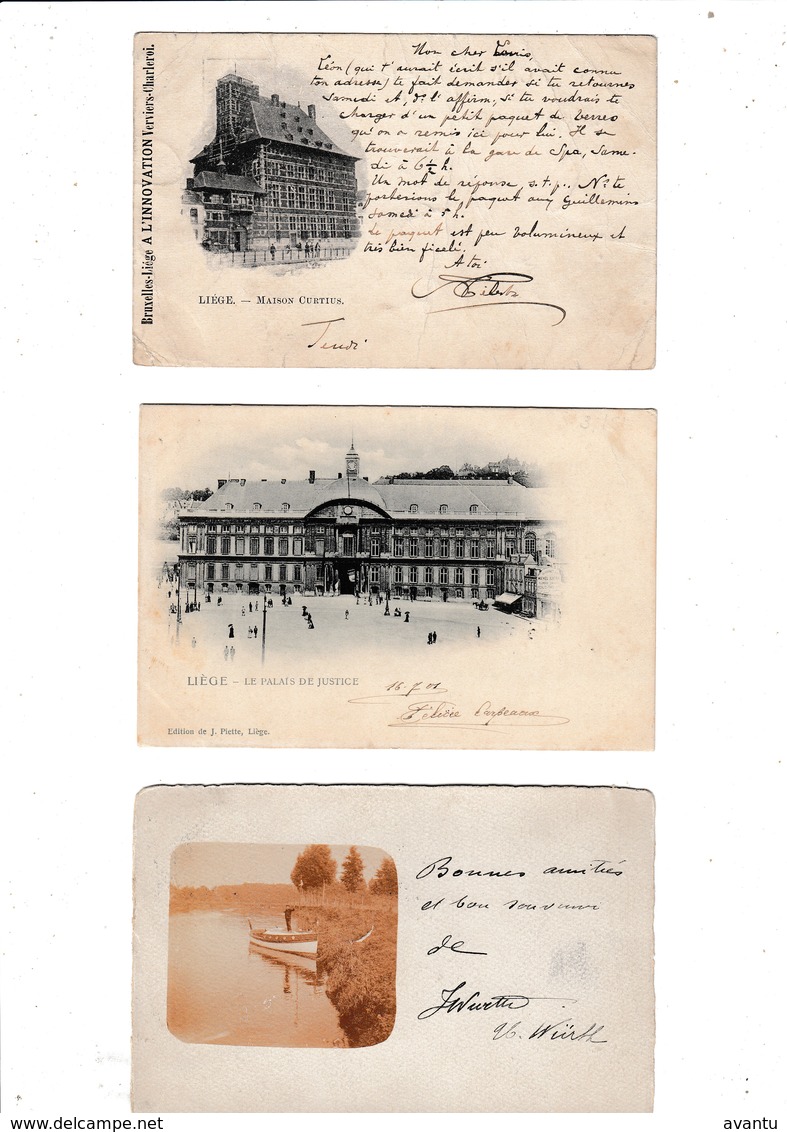 Bruxelles-Liége A L'INNOVATION Verviers-Charleroi.
Mon cher Louis,
Léon (qui t'aurait écrit s'il avait connu
ton adresse) te fait demander si tu retournes
samedi et, ds. l'affirm, si tu voudrais te
charger d'un petit paquet de verres
qu'on a remis ici pour lui. Il se
trouverait à la gare de Spa, same-
di à 6½ h.
Un mot de réponse s.t.p.. Ns te
porterions le paquet aux Guillemins
samedi à 5 h.
Le paquet est peu volumineux et
très bien ficelé.
A toi
LIÉGE. — MAISON CURTIUS.
Jeudi
LIÈGE – LE PALAIS DE JUSTICE
16.7.01
Edition de J. Piette, Liége.
Bonnes amitiés
et bon souvenir
de
JWurth
Würth
Delcampe.net
avantu